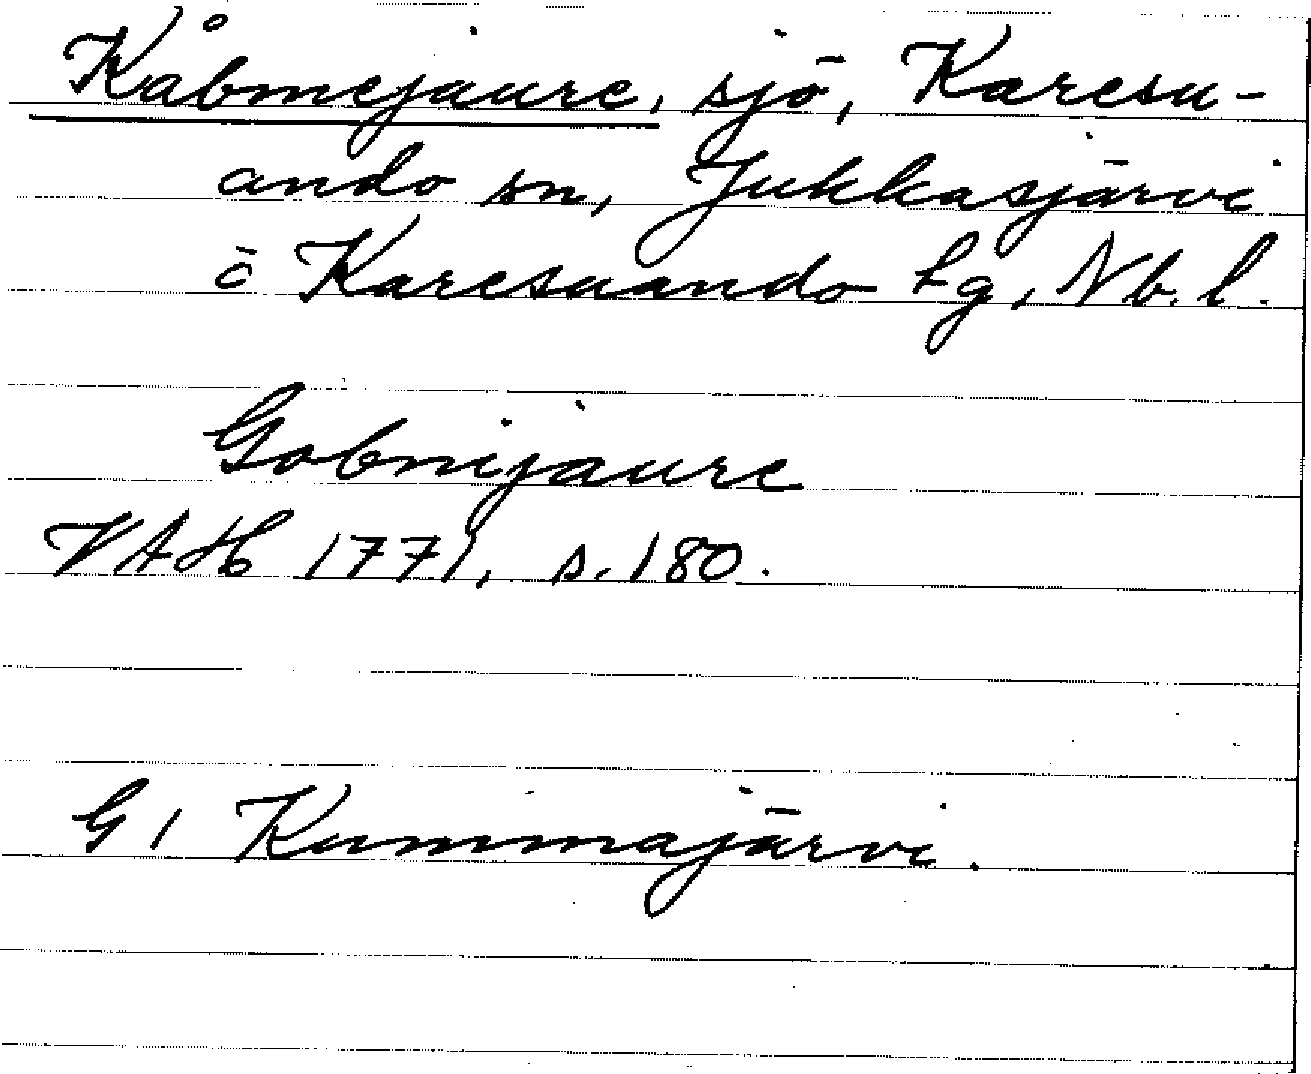 Kåbmejaure, sjö, Karesu-
ando sn, Jukkasjärvi
o Karesuando lg, Nb. l.
Gobmijaure
VAH 1771, s. 180.
G1 Kummajärvi.